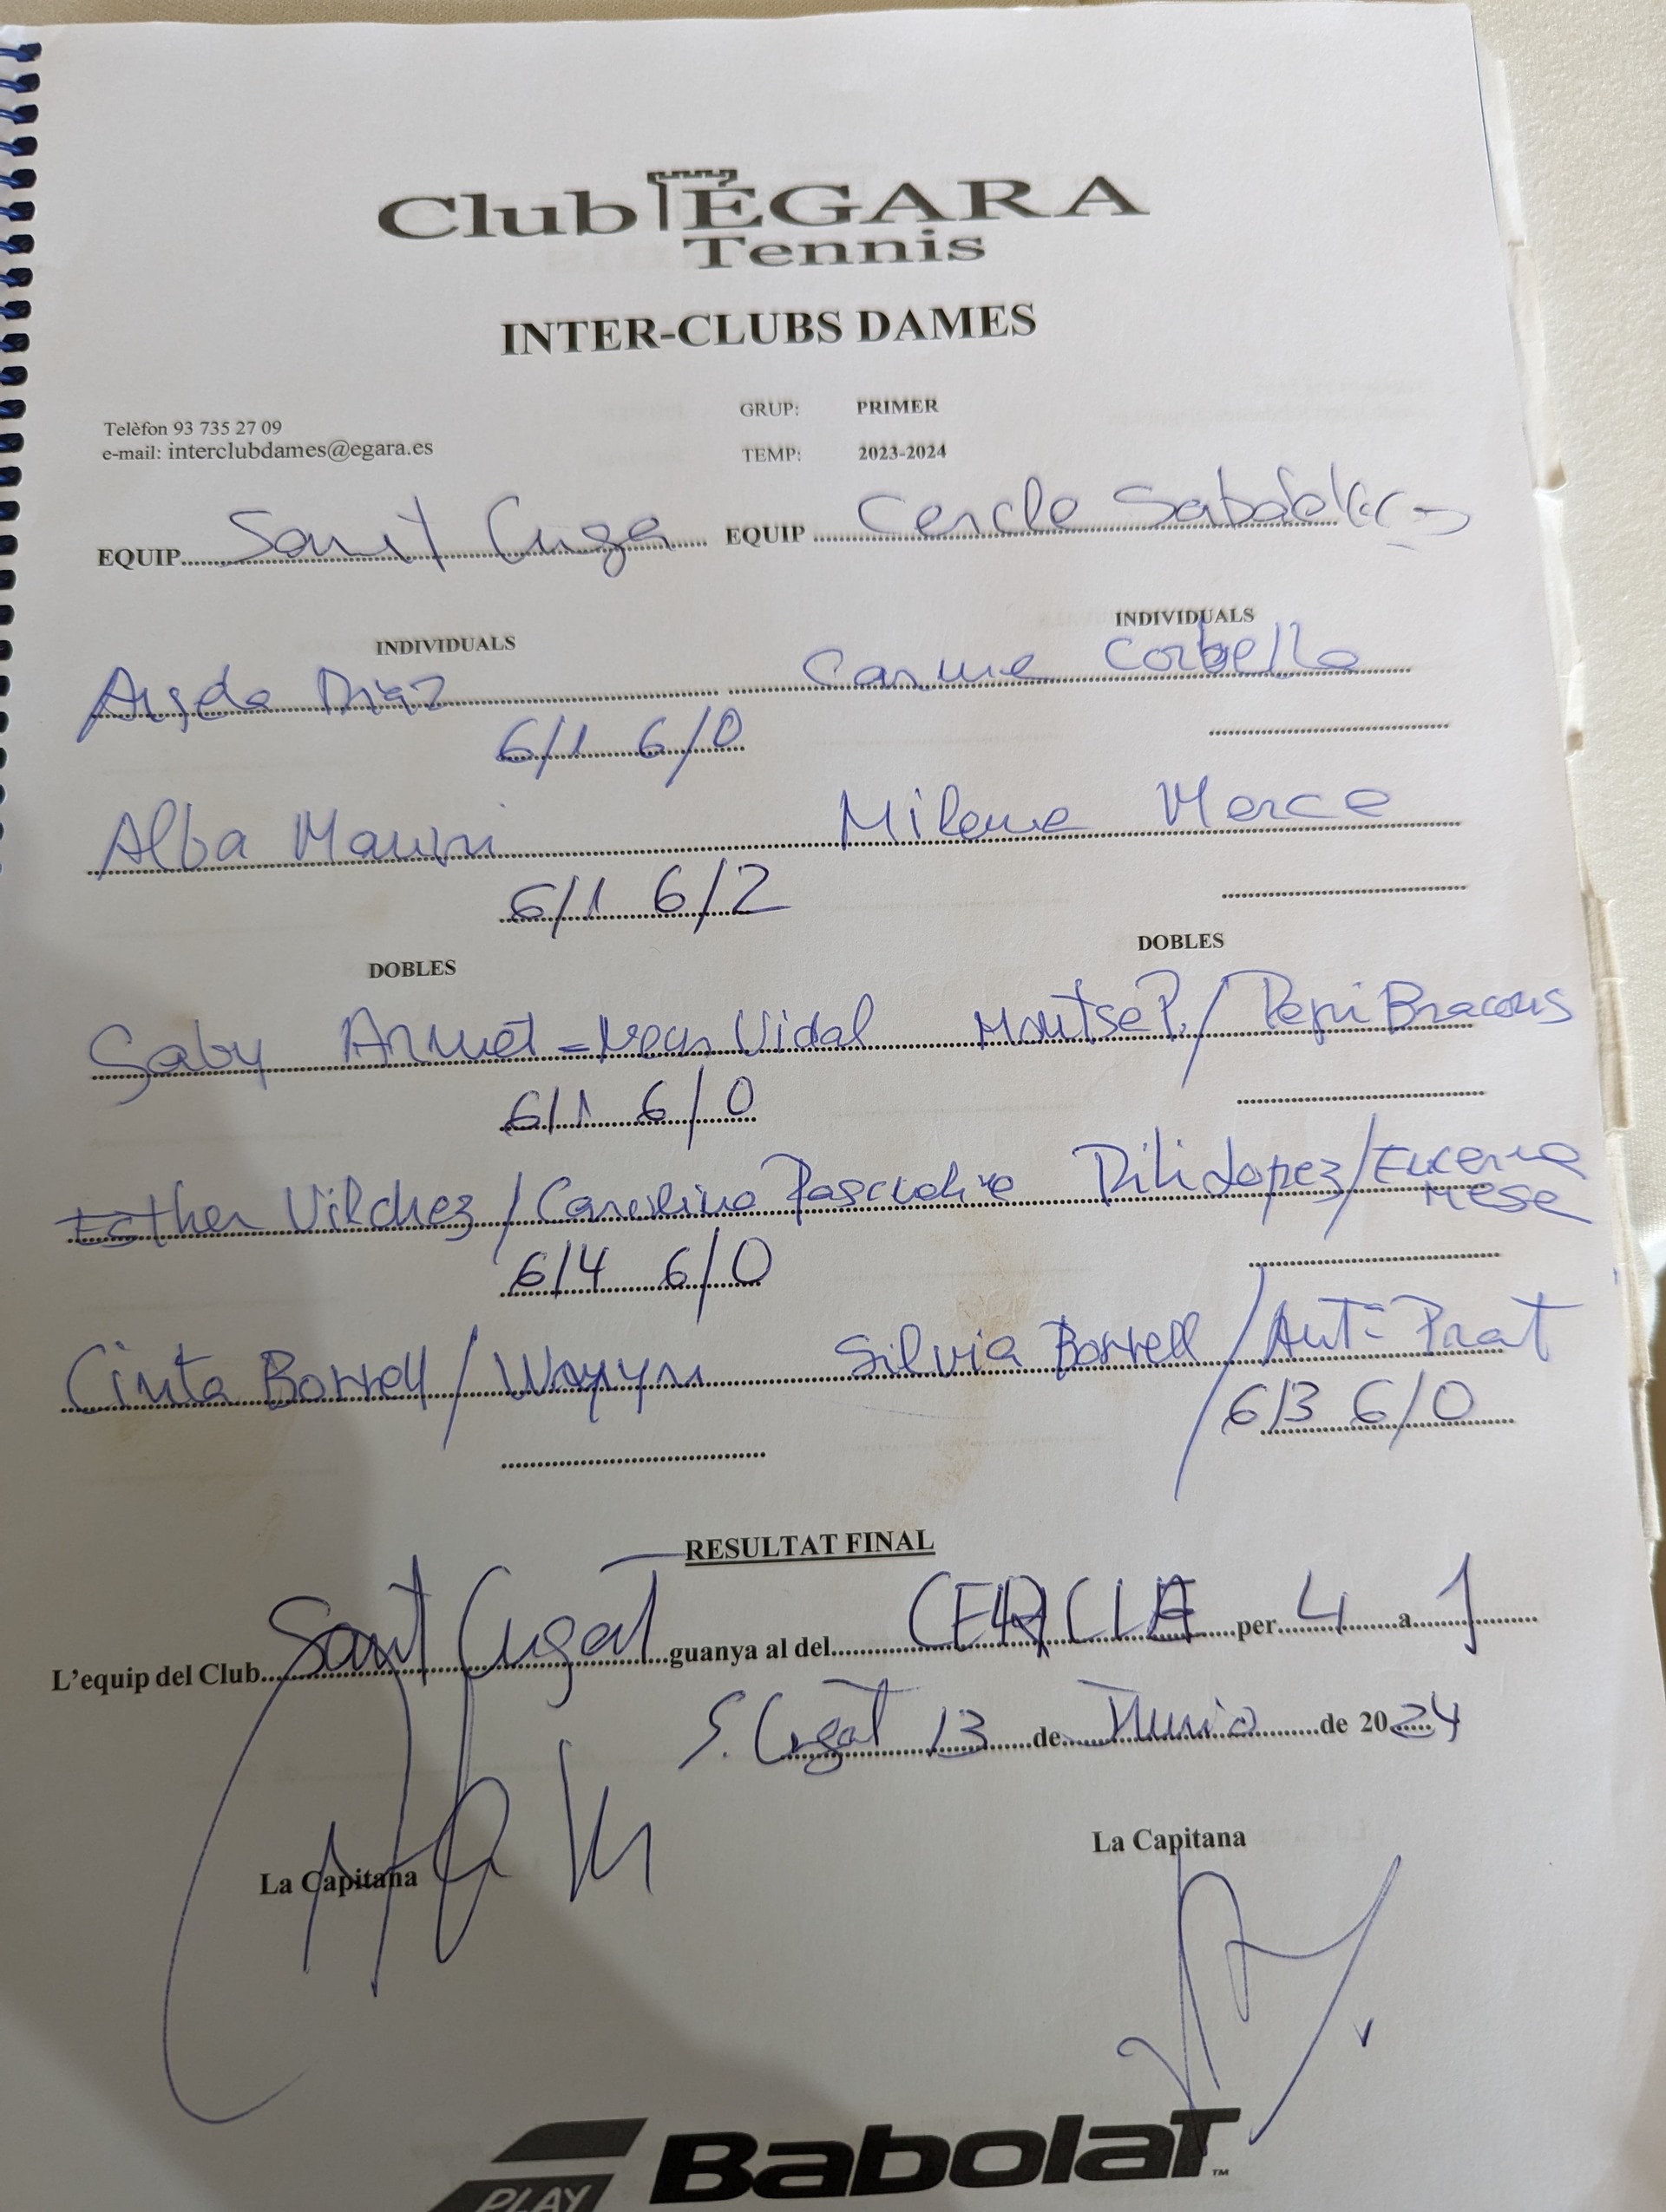 Club ÈGARA
Tennis
INTER-CLUBS DAMES
GRUP: PRIMER
Telèfon 93 735 27 09
e-mail: interclubdames@egara.es
TEMP: 2023-2024
EQUIP Sant Cuga EQUIP Cercle Sabadell
INDIVIDUALS INDIVIDUALS
Diaz Carme Corbella
6/1 6/0
Alba Mauri Milena Merce
6/1 6/2
DOBLES DOBLES
Gaby Armet - Vidal Montse P. / Pepi Bracons
6/1 6/0
Esther Vilchez / Carolina Pili Lopez /
6/4 6/0
Cinta Borrell / Silvia Borrell / Prat
6/3 6/0
RESULTAT FINAL
L'equip del Club Sant Cugat guanya al del CERCLE per 4 a 1
S. Cugat 13 de Junio de 2024
La Capitana
La Capitana
PLAY Babolat™